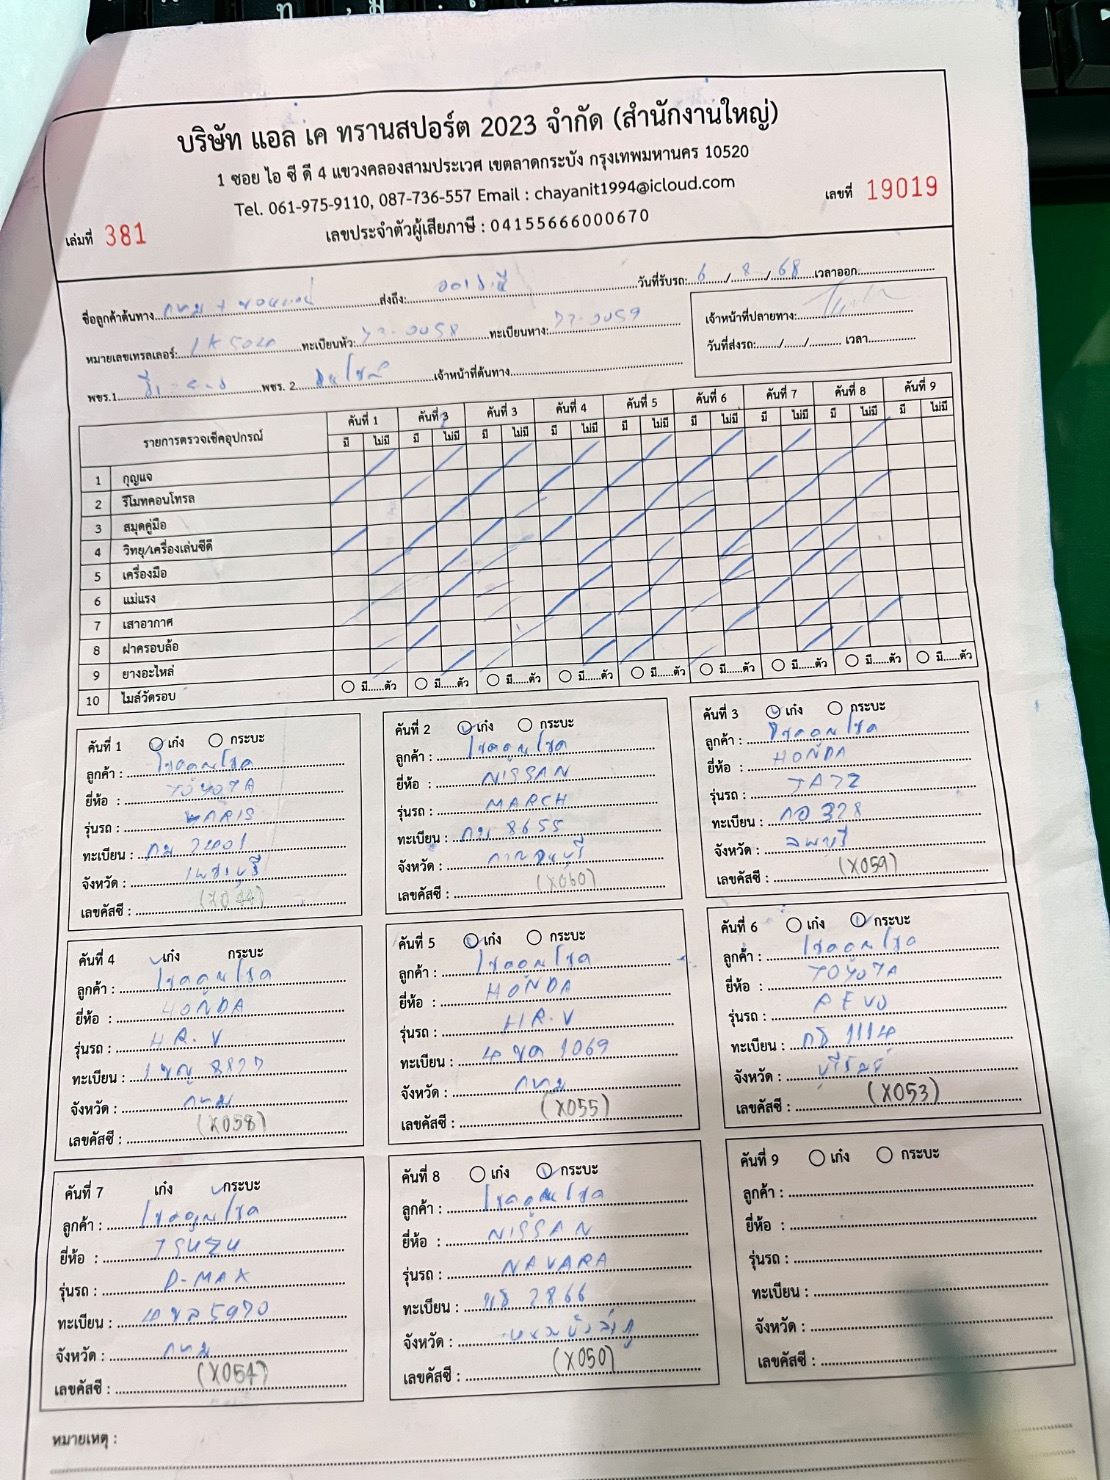 บริษัท แอล เค ทรานสปอร์ต 2023 จำกัด (สำนักงานใหญ่)
1 ซอย ไอ ซี ดี 4 แขวงคลองสามประเวศ เขตลาดกระบัง กรุงเทพมหานคร 10520
Tel. 061-975-9110, 087-736-557 Email : chayanit1994@icloud.com
เลขประจำตัวผู้เสียภาษี : 04155666000670
เล่มที่ 381
เลขที่ 19019
ชื่อลูกค้าต้นทาง ส่งถึง: วันที่รับรถ: 6 / 8 / 68 เวลาออก:
หมายเลขเทรลเลอร์: ทะเบียนหัว: 72-0058 ทะเบียนหาง: 72-0059
เจ้าหน้าที่ปลายทาง:
วันที่ส่งรถ: / / เวลา
พขร.1 พขร. 2 เจ้าหน้าที่ต้นทาง
รายการตรวจเช็คอุปกรณ์ คันที่ 1 คันที่ 3 คันที่ 3 คันที่ 4 คันที่ 5 คันที่ 6 คันที่ 7 คันที่ 8 คันที่ 9
มี ไม่มี มี ไม่มี มี ไม่มี มี ไม่มี มี ไม่มี มี ไม่มี มี ไม่มี มี ไม่มี มี ไม่มี
1 กุญแจ
2 รีโมทคอนโทรล
3 สมุดคู่มือ
4 วิทยุ/เครื่องเล่นซีดี
5 เครื่องมือ
6 แม่แรง
7 เสาอากาศ
8 ฝาครอบล้อ
9 ยางอะไหล่
10 ไมล์วัดรอบ มี......ตัว มี......ตัว มี......ตัว มี......ตัว มี......ตัว มี......ตัว มี......ตัว มี......ตัว มี......ตัว
คันที่ 1 เก๋ง กระบะ
ลูกค้า : โชคคูณโชค
ยี่ห้อ : TOYOTA
รุ่นรถ : YARIS
ทะเบียน :
จังหวัด : เพชรบุรี
เลขคัสซี : (X044)
คันที่ 2 เก๋ง กระบะ
ลูกค้า : โชคคูณโชค
ยี่ห้อ : NISSAN
รุ่นรถ : MARCH
ทะเบียน : กม 8655
จังหวัด : กาญจนบุรี
เลขคัสซี : (X060)
คันที่ 3 เก๋ง กระบะ
ลูกค้า : โชคคูณโชค
ยี่ห้อ : HONDA
รุ่นรถ : JAZZ
ทะเบียน : กอ 328
จังหวัด : ลพบุรี
เลขคัสซี : (X059)
คันที่ 4 เก๋ง กระบะ
ลูกค้า : โชคคูณโชค
ยี่ห้อ : HONDA
รุ่นรถ : HR.V
ทะเบียน : 1ขญ 8827
จังหวัด : กทม
เลขคัสซี : (X058)
คันที่ 5 เก๋ง กระบะ
ลูกค้า : โชคคูณโชค
ยี่ห้อ : HONDA
รุ่นรถ : HR.V
ทะเบียน : 4 ขค 1069
จังหวัด : กทม
เลขคัสซี : (X055)
คันที่ 6 เก๋ง กระบะ
ลูกค้า : โชคคูณโชค
ยี่ห้อ : TOYOTA
รุ่นรถ : REVO
ทะเบียน : กธ 1114
จังหวัด : บุรีรัมย์
เลขคัสซี : (X053)
คันที่ 7 เก๋ง กระบะ
ลูกค้า : โชคคูณโชค
ยี่ห้อ : ISUZU
รุ่นรถ : D-MAX
ทะเบียน : 4 ขล 5970
จังหวัด : กทม
เลขคัสซี : (X054)
คันที่ 8 เก๋ง กระบะ
ลูกค้า : โชคคูณโชค
ยี่ห้อ : NISSAN
รุ่นรถ : NAVARA
ทะเบียน : 2866
จังหวัด : หนองบัวลำภู
เลขคัสซี : (X050)
คันที่ 9 เก๋ง กระบะ
ลูกค้า :
ยี่ห้อ :
รุ่นรถ :
ทะเบียน :
จังหวัด :
เลขคัสซี :
หมายเหตุ :